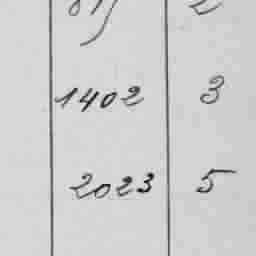 1402 3
2023 5